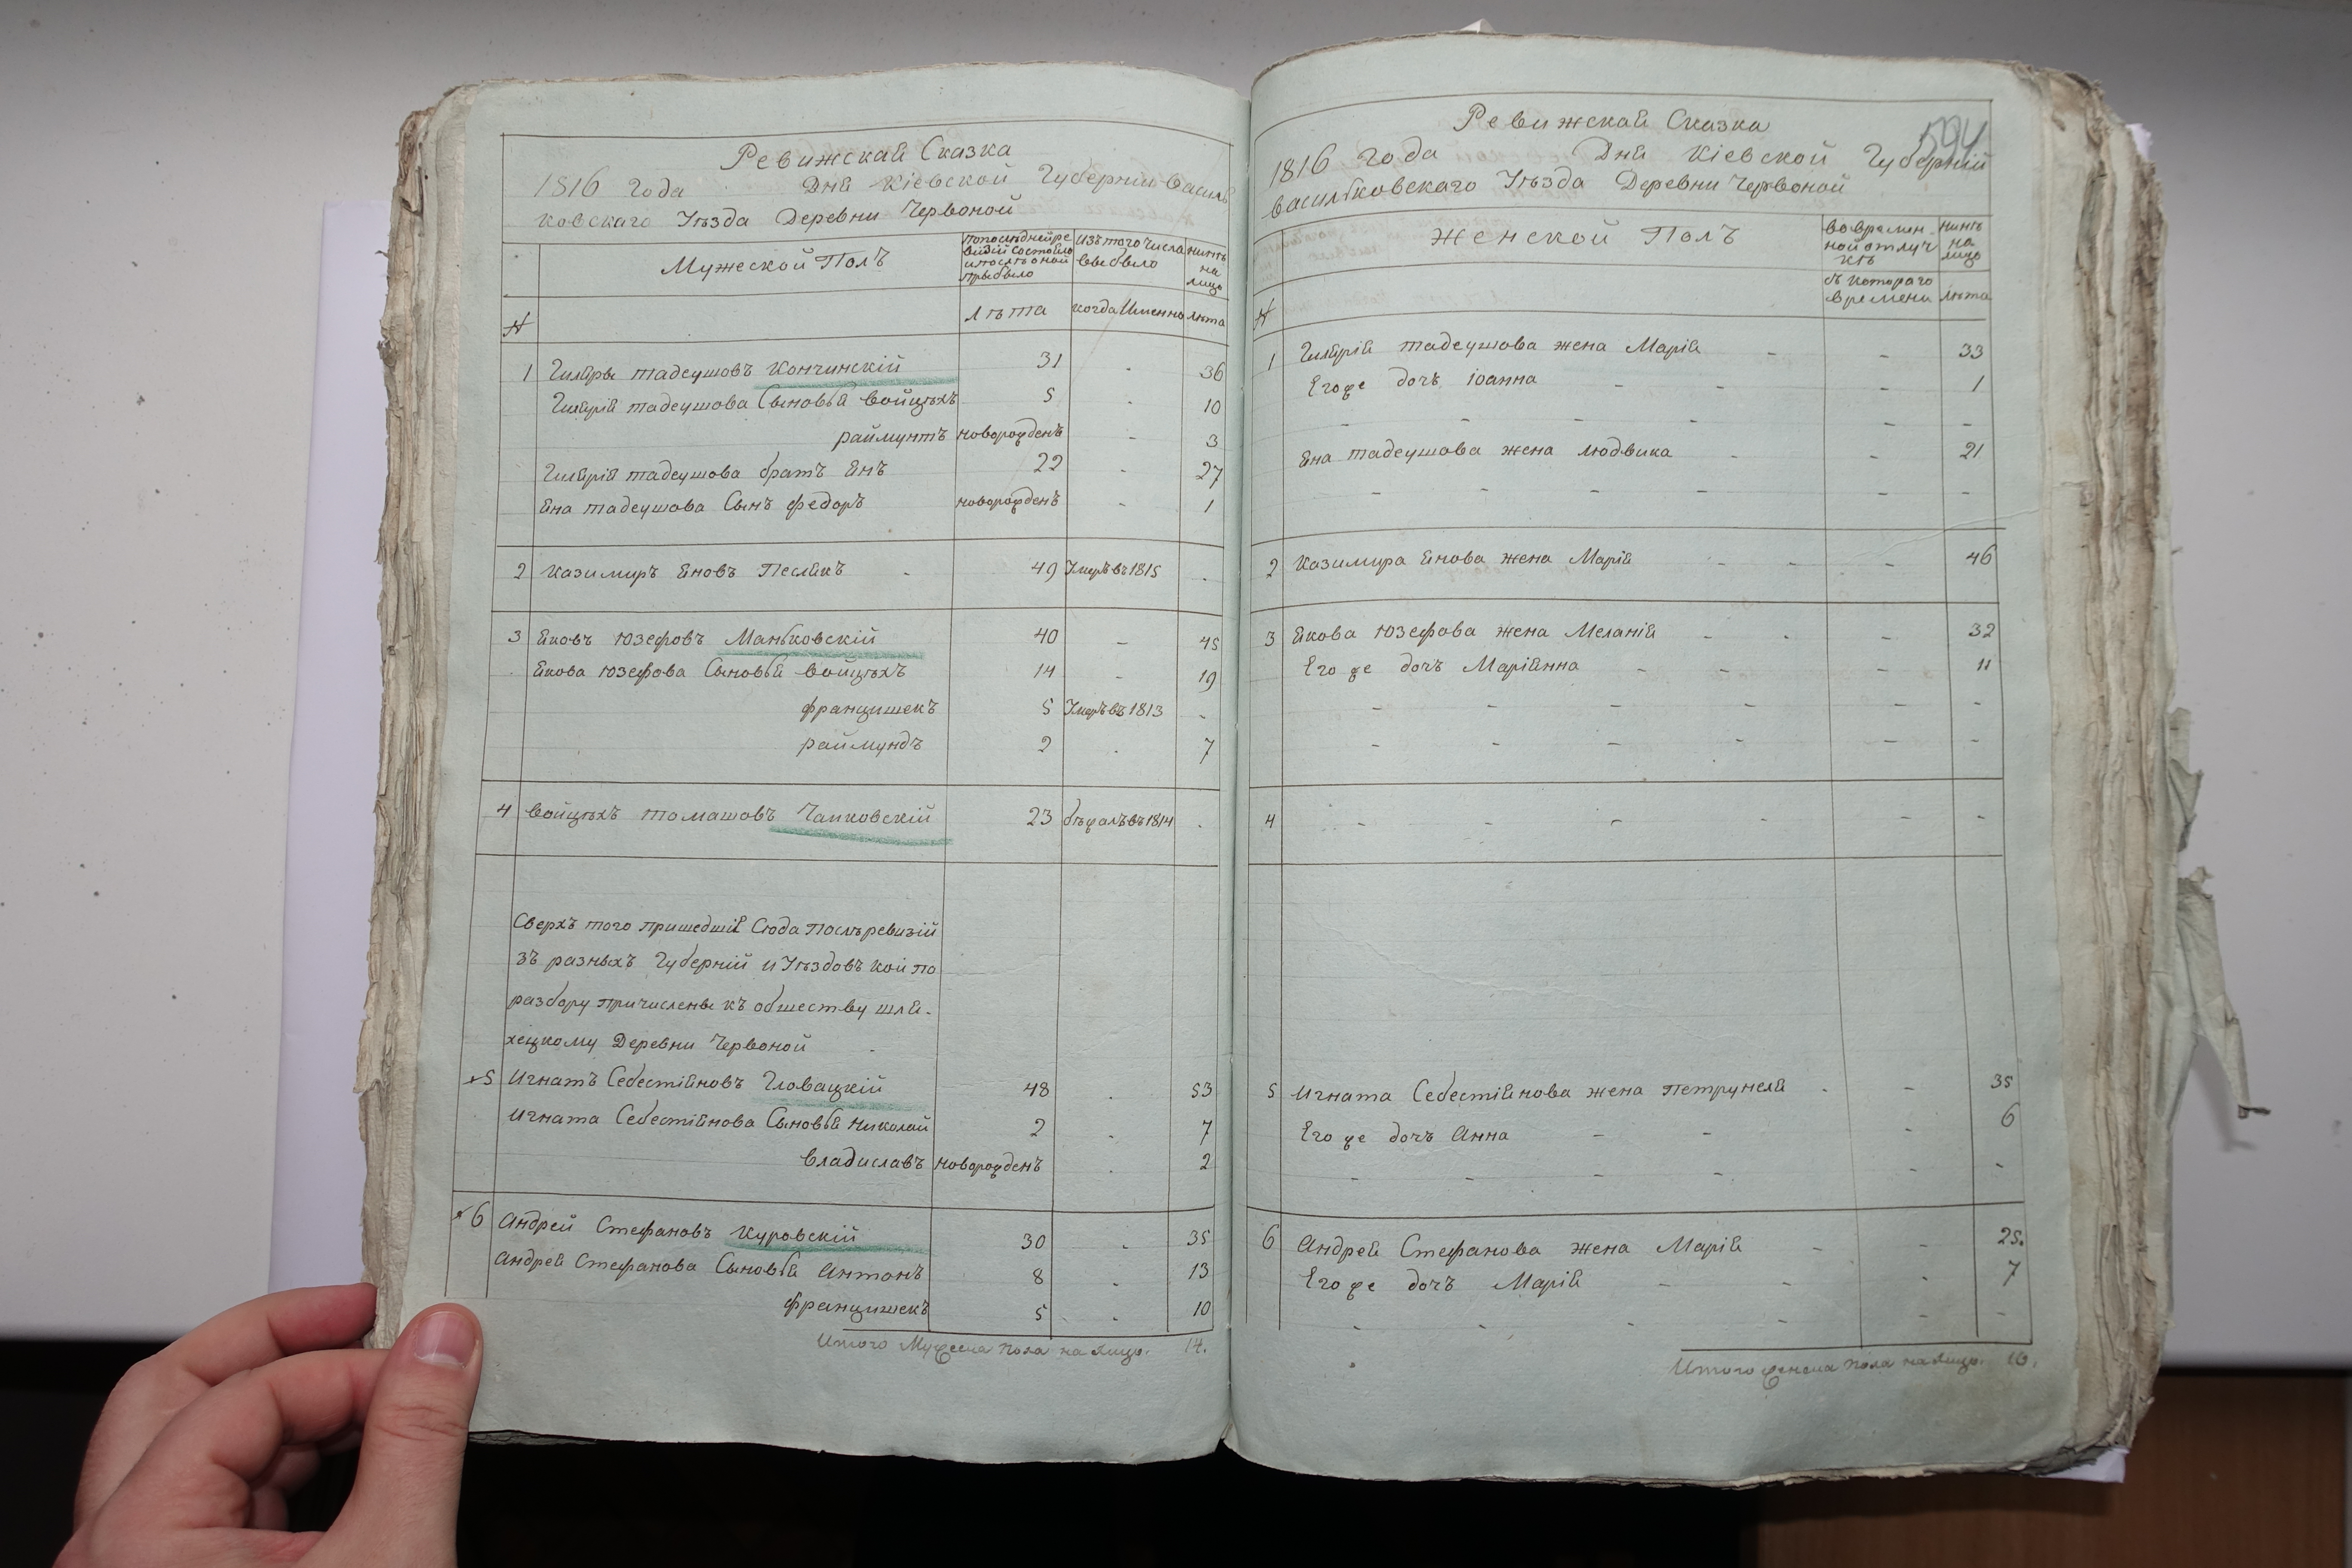 Ревижская Сказка
1816 года Дня Кіевской Губерніи Василь
ковскаго Уѣзда Деревни Червоной
Мужеской Полъ
попослѣдней ре
визіи состояло
и послѣ оной
прибыло
изътого числа
выбыло
нынѣ
на
лицо
№
Лѣта
когда Именно
лѣта
1 Гиляры тадеушовъ Кончинскій 31 36
Гилярія тадеушова Сыновья войцѣхъ 5 10
раймунтъ новорожденъ 3
Гилярія тадеушова братъ Янъ 22 27
Яна тадеушова Сынъ федоръ новорожденъ 1
2 казимиръ Яновъ Песляκъ 49 Умеръ въ 1815
3 Яковъ Юзефовъ Маньковскій 40 45
Якова Юзефова Сыновья войцѣхъ 14 19
францишекъ 5 Умеръ въ 1813
раймундъ 2 7
4 войцѣхъ томашовъ Чапковскій 23 бѣжалъ въ 1814
Сверхъ того пришедшія Сюда послѣ ревизій
зъ разныхъ Губерній и Уѣздовъ кои по
разбору причислены къ обществу шля-
хецкому Деревни Червоной
5 Игнатъ Себестіяновъ Гловацкій 48 53
Игната Себестіянова Сыновья Николай 2 7
владиславъ новорожденъ 2
6 Андрей Стефановъ Куровскій 30 35
Андрея Стефанова Сыновья Антонъ 8 13
францишекъ 5 10
Итого Мужеска пола на лицо. 14.
594
Ревижская Сказка
1816 года Дня Кіевской Губерніи
васильковскаго Уѣзда Деревни Червоной
Женской Полъ
во времен-
ной отлуч
кѣ
нынѣ
на
лицо
№
съ котораго
времени
лѣта
1 Гилярія тадеушова жена Марія 33
Его же дочъ Іоанна 1
Яна тадеушова жена людвика 21
2 Казимира Янова жена Марія 46
3 Якова Юзефова жена Меланія 32
Его же дочъ Маріянна 11
4
5 Игната Себестіянова жена Петрунеля 35
Его же дочъ Анна 6
6 Андрея Стефанова жена Марія 25.
Его же дочъ Марія 7
Итого женска пола на лицо. 10.